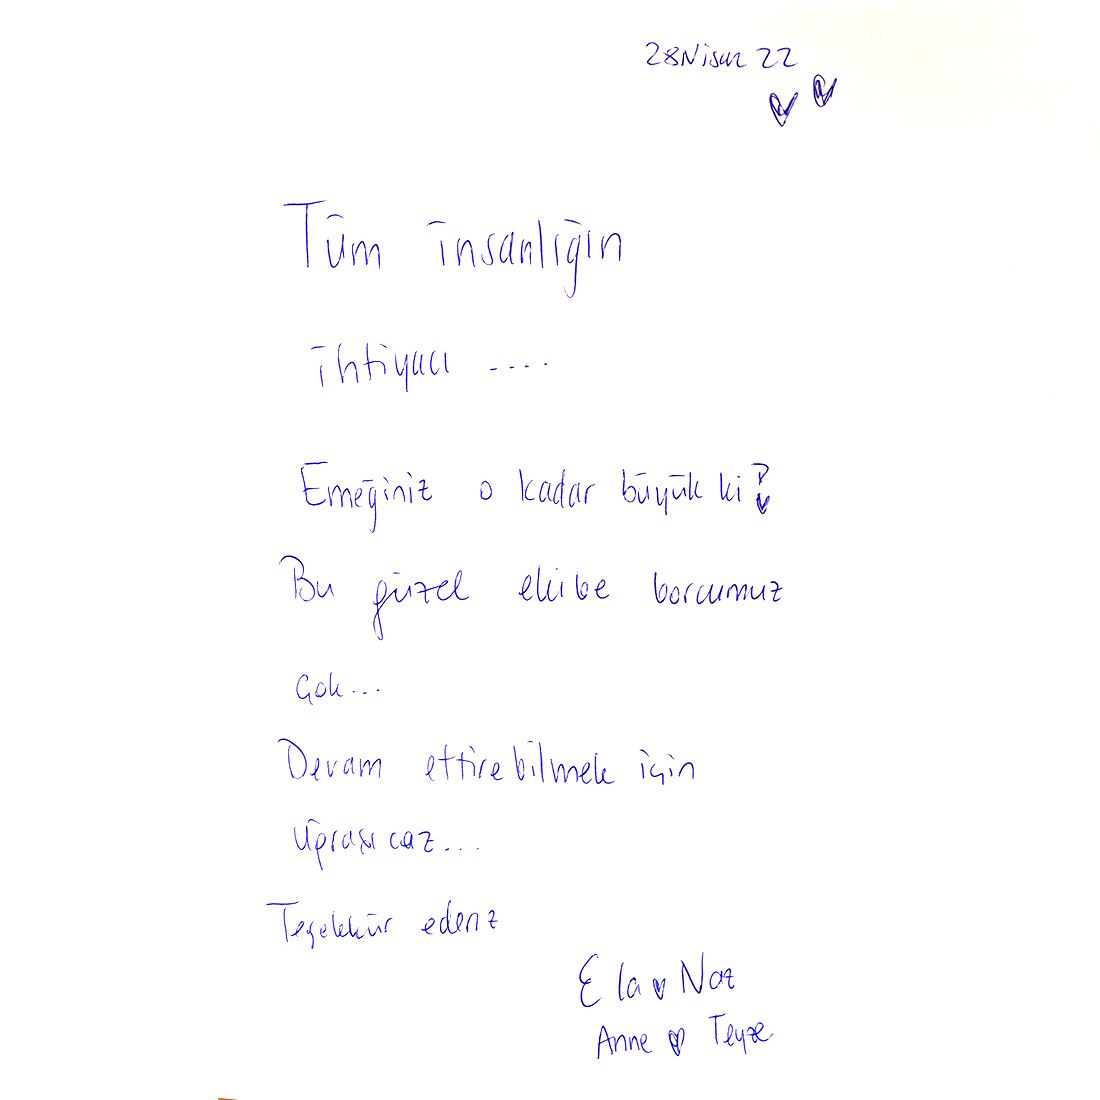 28 Nisan 22
Tüm insanlığın
ihtiyacı ....
Emeğiniz o kadar büyük ki
Bu güzel ekibe borcumuz
çok...
Devam ettirebilmek için
Uğraşıcaz...
Teşekkür ederiz
Ela Naz
Anne Teyze